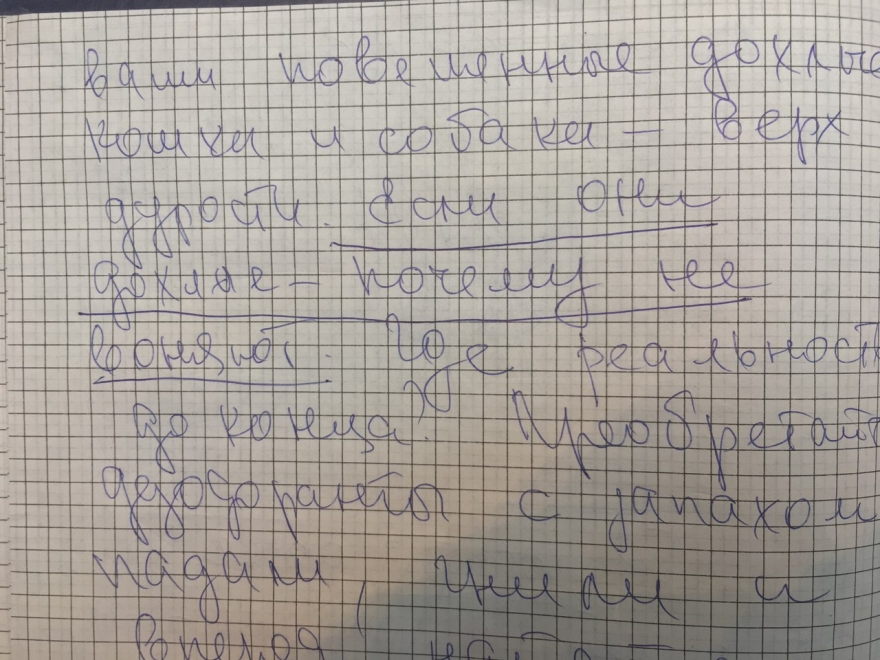 вами повешенные дохлые
кошки и собаки – верх
дурости. Если они
дохлые – почему не
воняют. Где реальност
до конца? Преобретайт
дезодоранты с запахом
падали, и